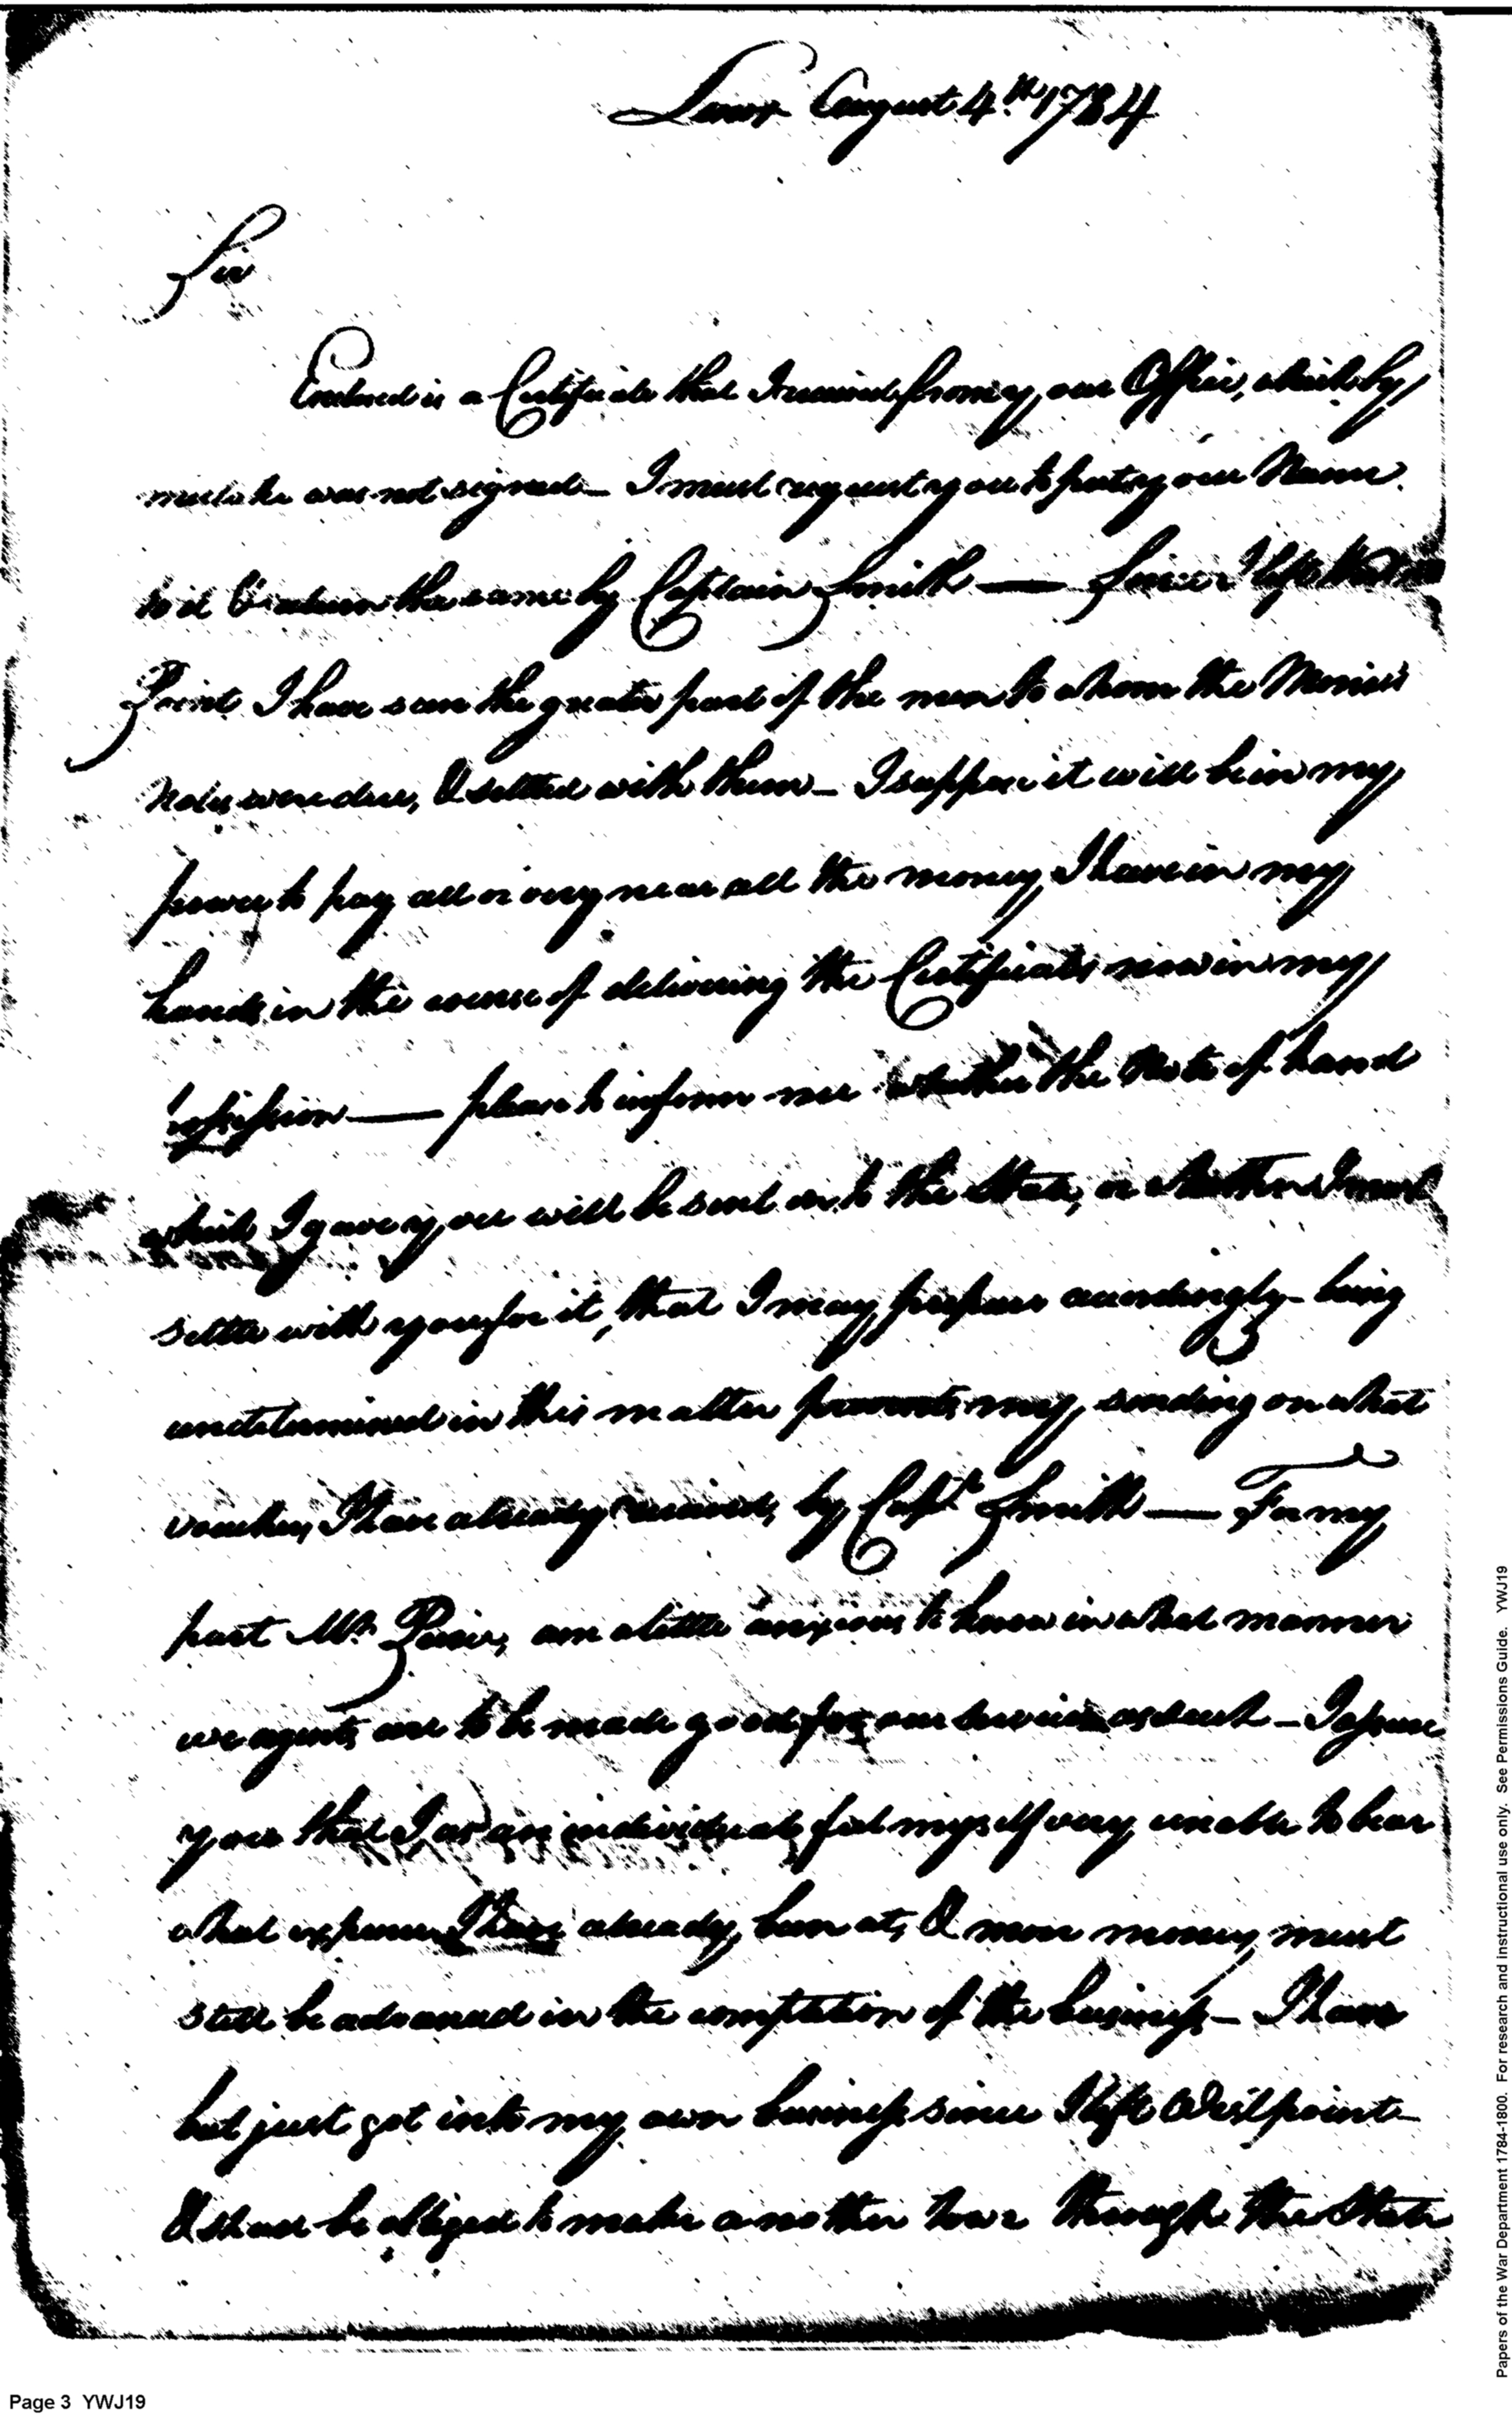 Lenox August 4th 1784
Sir
Enclosed is a Certificate that I received from your Office, which by
mistake was not signed — I must request you to put your Name
to it & return the same by Captain Smith — Since I left West
Point I have seen the greater part of the men to whom the Morris's
Notes were due, & settled with them — I suppose it will be in my
power to pay all or very near all the money I have in my
hands in the course of delivering the Certificates now in my
possession — please to inform me whether the Note of hand
which I gave you will be sent on to the State, or whether I must
settle with you for it, that I may prepare accordingly — being
undetermined in this matter prevents my sending on what
vouchers I have already received, by Capt Smith — For my
part Mr. Pierce, am a little anxious to know in what manner
we agents are to be made good for our services as such — I assure
you that I as an individual feel myself very unable to bear
what expense I have already been at, & more money must
still be advanced in the completion of the business — I have
but just got into my own business since I left Westpoint —
& shall be obliged to make another tour through the State
Page 3 YWJ19
Papers of the War Department 1784-1800. For research and instructional use only. See Permissions Guide. YWJ19